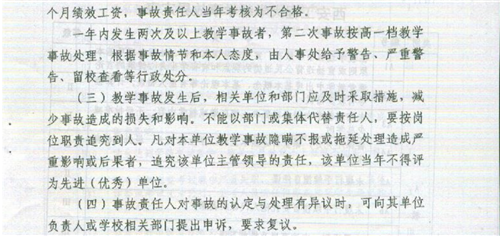 个月绩效工资，事故责任人当年考核为不合格。
一年内发生两次及以上教学事故者，第二次事故按高一档教学
事故处理，根据事故情节和本人态度，由人事处给予警告、严重警
告、留校查看等行政处分。
（三）教学事故发生后，相关单位和部门应及时采取措施，减
少事故造成的损失和影响。不能以部门或集体代替责任人，要按岗
位职责追究到人。凡对本单位教学事故隐瞒不报或拖延处理造成严
重影响或后果者，追究该单位主管领导的责任，该单位当年不得评
为先进（优秀）单位。
（四）事故责任人对事故的认定与处理有异议时，可向其单位
负责人或学校相关部门提出申诉，要求复议。